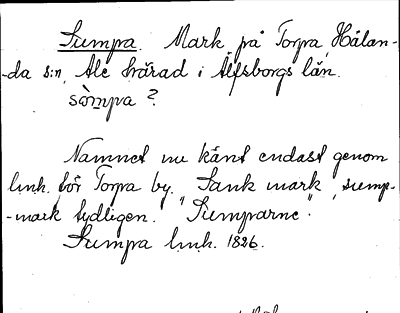 Sumpa. Mark på Torpa, Hålan-
-da s:n, Ale härad i Älfsborgs län.
sòmpa ?
Namnet nu känt endast genom
l.m.h. för Torpa by. Sank mark, sump-
-mark tydligen. "Sumparne".
Sumpa l.m.h. 1826.